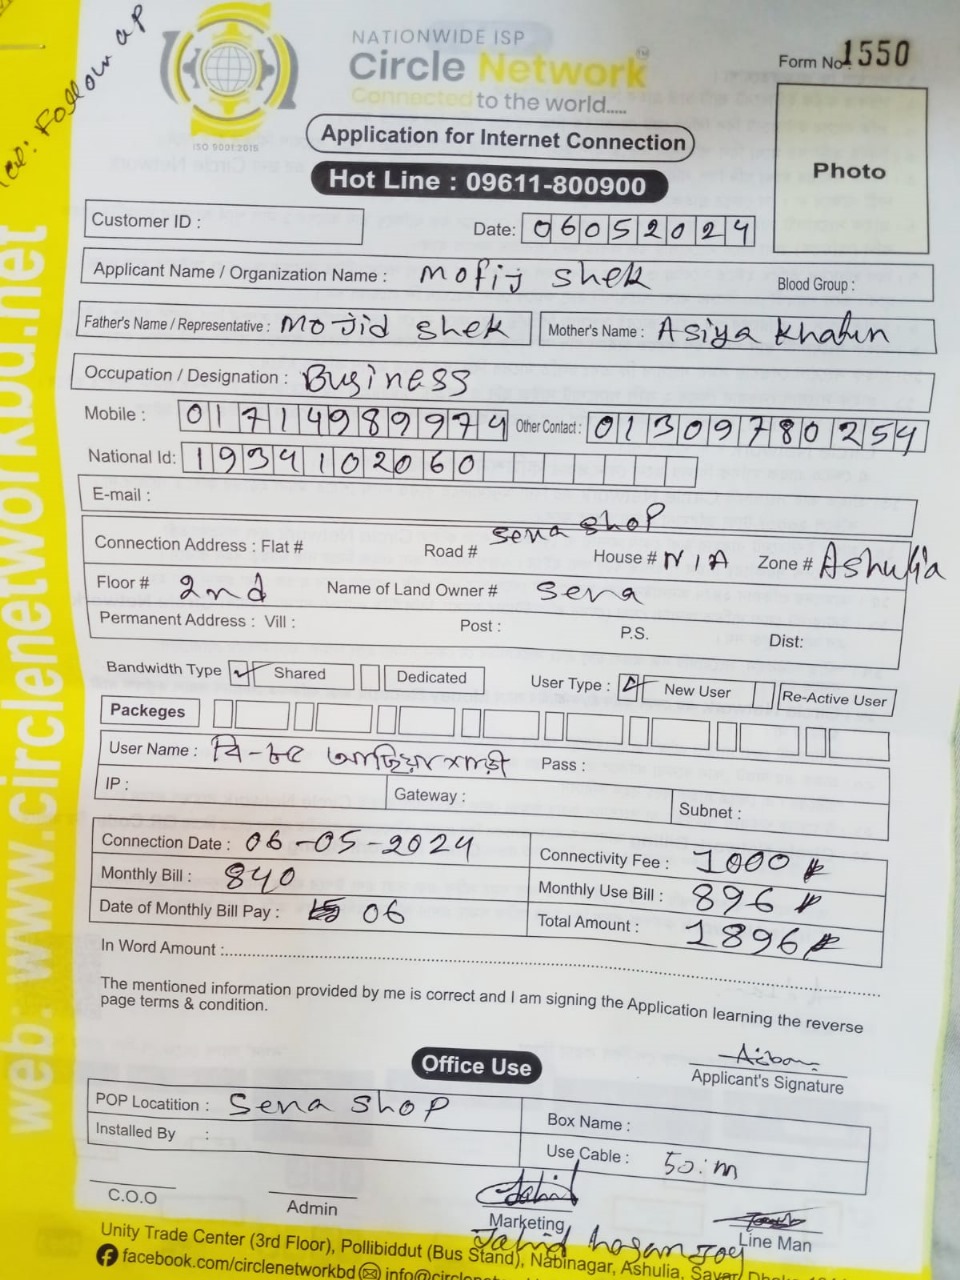 Follow up
NATIONWIDE ISP
Circle Network™
Connected to the world.....
ISO 9001:2015
Form No 1550
Application for Internet Connection
Photo
Hot Line : 09611-800900
Customer ID :
Date: 06052024
Applicant Name / Organization Name : Mofij shek
Blood Group :
Father's Name / Representative : Mojid shek
Mother's Name : Asiya Khatun
Occupation / Designation : Business
Mobile : 01714989974 Other Contact : 01309780254
National Id: 1934102060
E-mail :
Connection Address : Flat # Road # sena shop House # N/A Zone # Ashulia
Floor # 2nd Name of Land Owner # sena
Permanent Address : Vill : Post : P.S. Dist:
Bandwidth Type Shared Dedicated User Type : New User Re-Active User
Packeges
User Name : Pass :
IP : Gateway : Subnet :
Connection Date : 06-05-2024 Connectivity Fee : 1000
Monthly Bill : 840 Monthly Use Bill : 896
Date of Monthly Bill Pay : 06 Total Amount : 1896
In Word Amount :
The mentioned information provided by me is correct and I am signing the Application learning the reverse
page terms & condition.
Applicant's Signature
Office Use
POP Locatition : Sena shop Box Name :
Installed By : Use Cable : 50:m
C.O.O Admin Marketing Line Man
Jahid hasan Joy
Unity Trade Center (3rd Floor), Pollibiddut (Bus Stand), Nabinagar, Ashulia, Savar
facebook.com/circlenetworkbd
web: www.circlenetworkbd.net